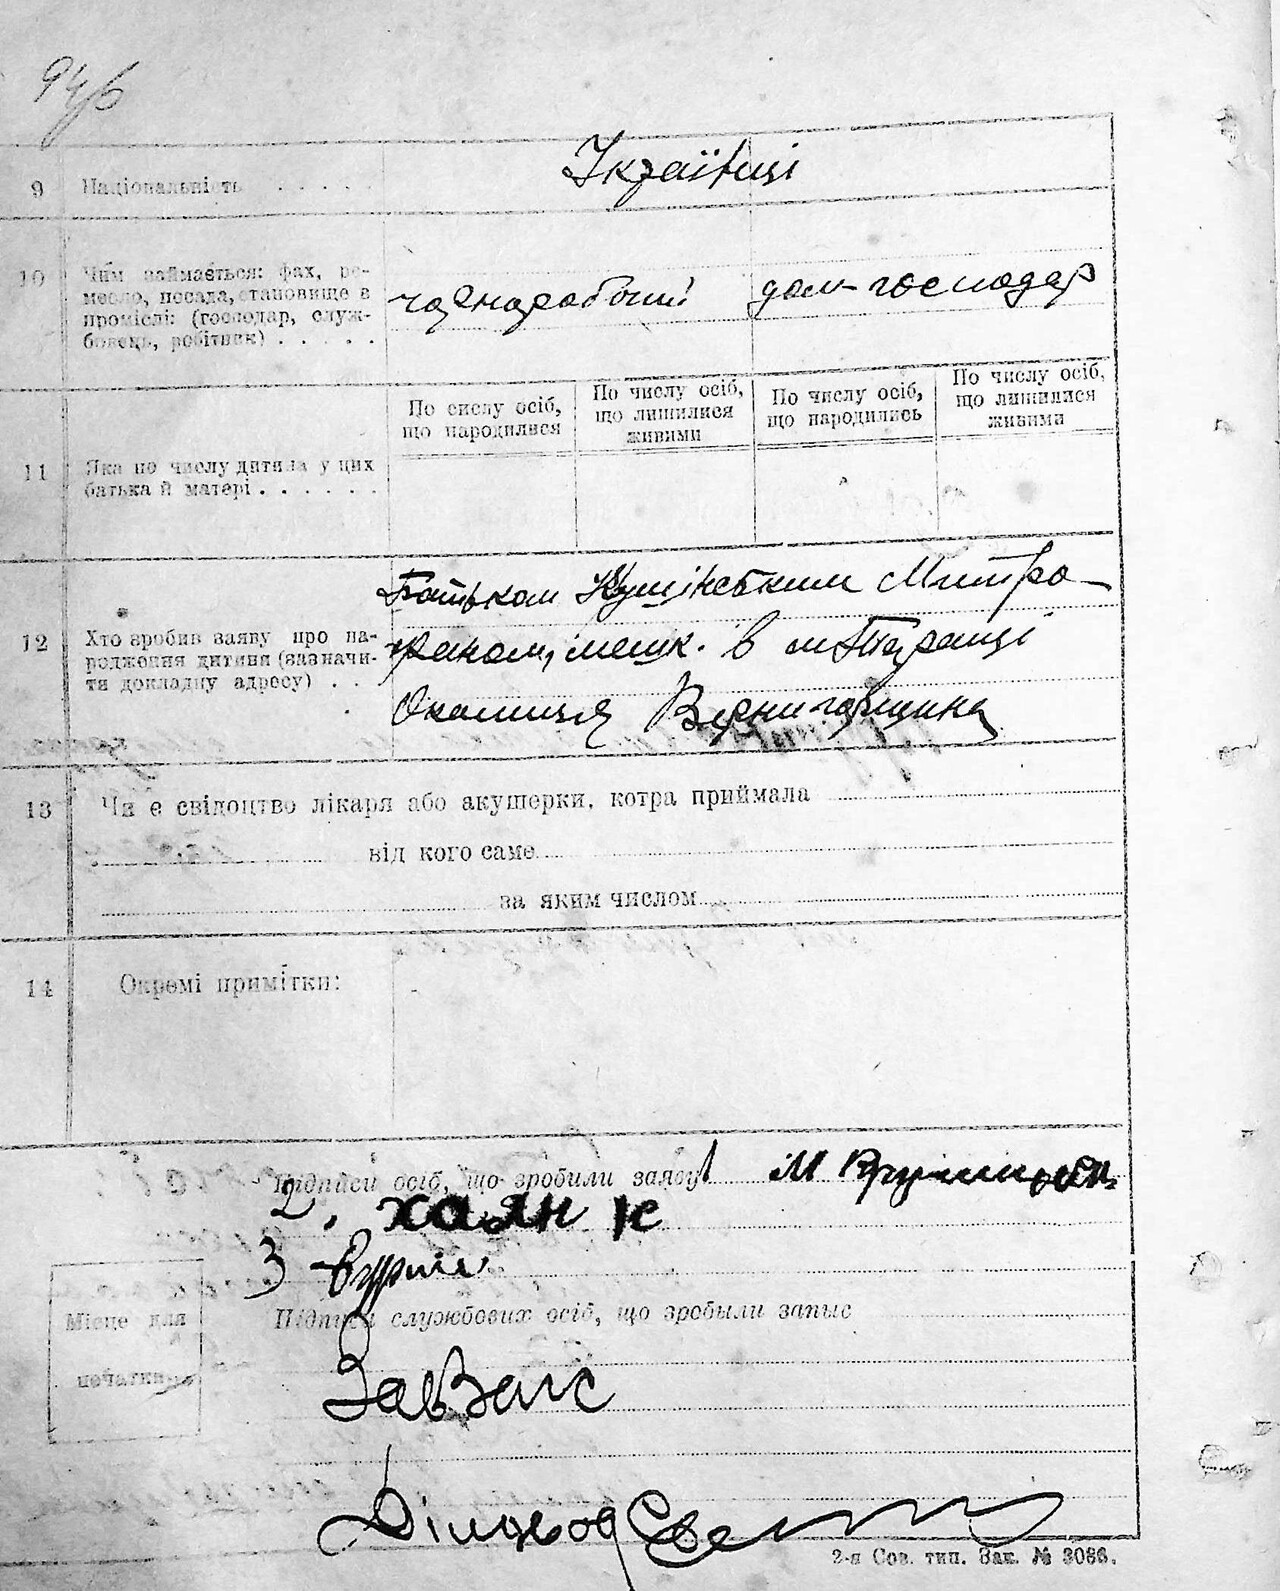 9 Національність . . . . . Українці
10 Чим займається: фах, ре-
месло, посада, становище в
промислі: (господар, служ-
бовець, робітник) . . . . .
чорноробочий дом-господар
По числу осіб,
що народилися
По числу осіб,
що лишилися
живими
По числу осіб,
що народились
По числу осіб,
що лишилися
живими
11 Яка по числу дитина у цих
батька й матері . . . . . .
12 Хто зробив заяву про на-
родження дитини (зазначи-
ти докладну адресу) . .
Батьком Митро-
фаном, мешк. в м Таращі
Околиця Вернигорщина
13 Чи є свідоцтво лікаря або акушерки, котра приймала
від кого саме
за яким числом
14 Окремі примітки:
Підписи осіб, що зробили заяву 1 М
2.
3
Підписи службових осіб, що зробыли запыс
Місце для
печатки
ЗавЗагс
Діловод
2-я Сов. тип. Зак. № 3086.